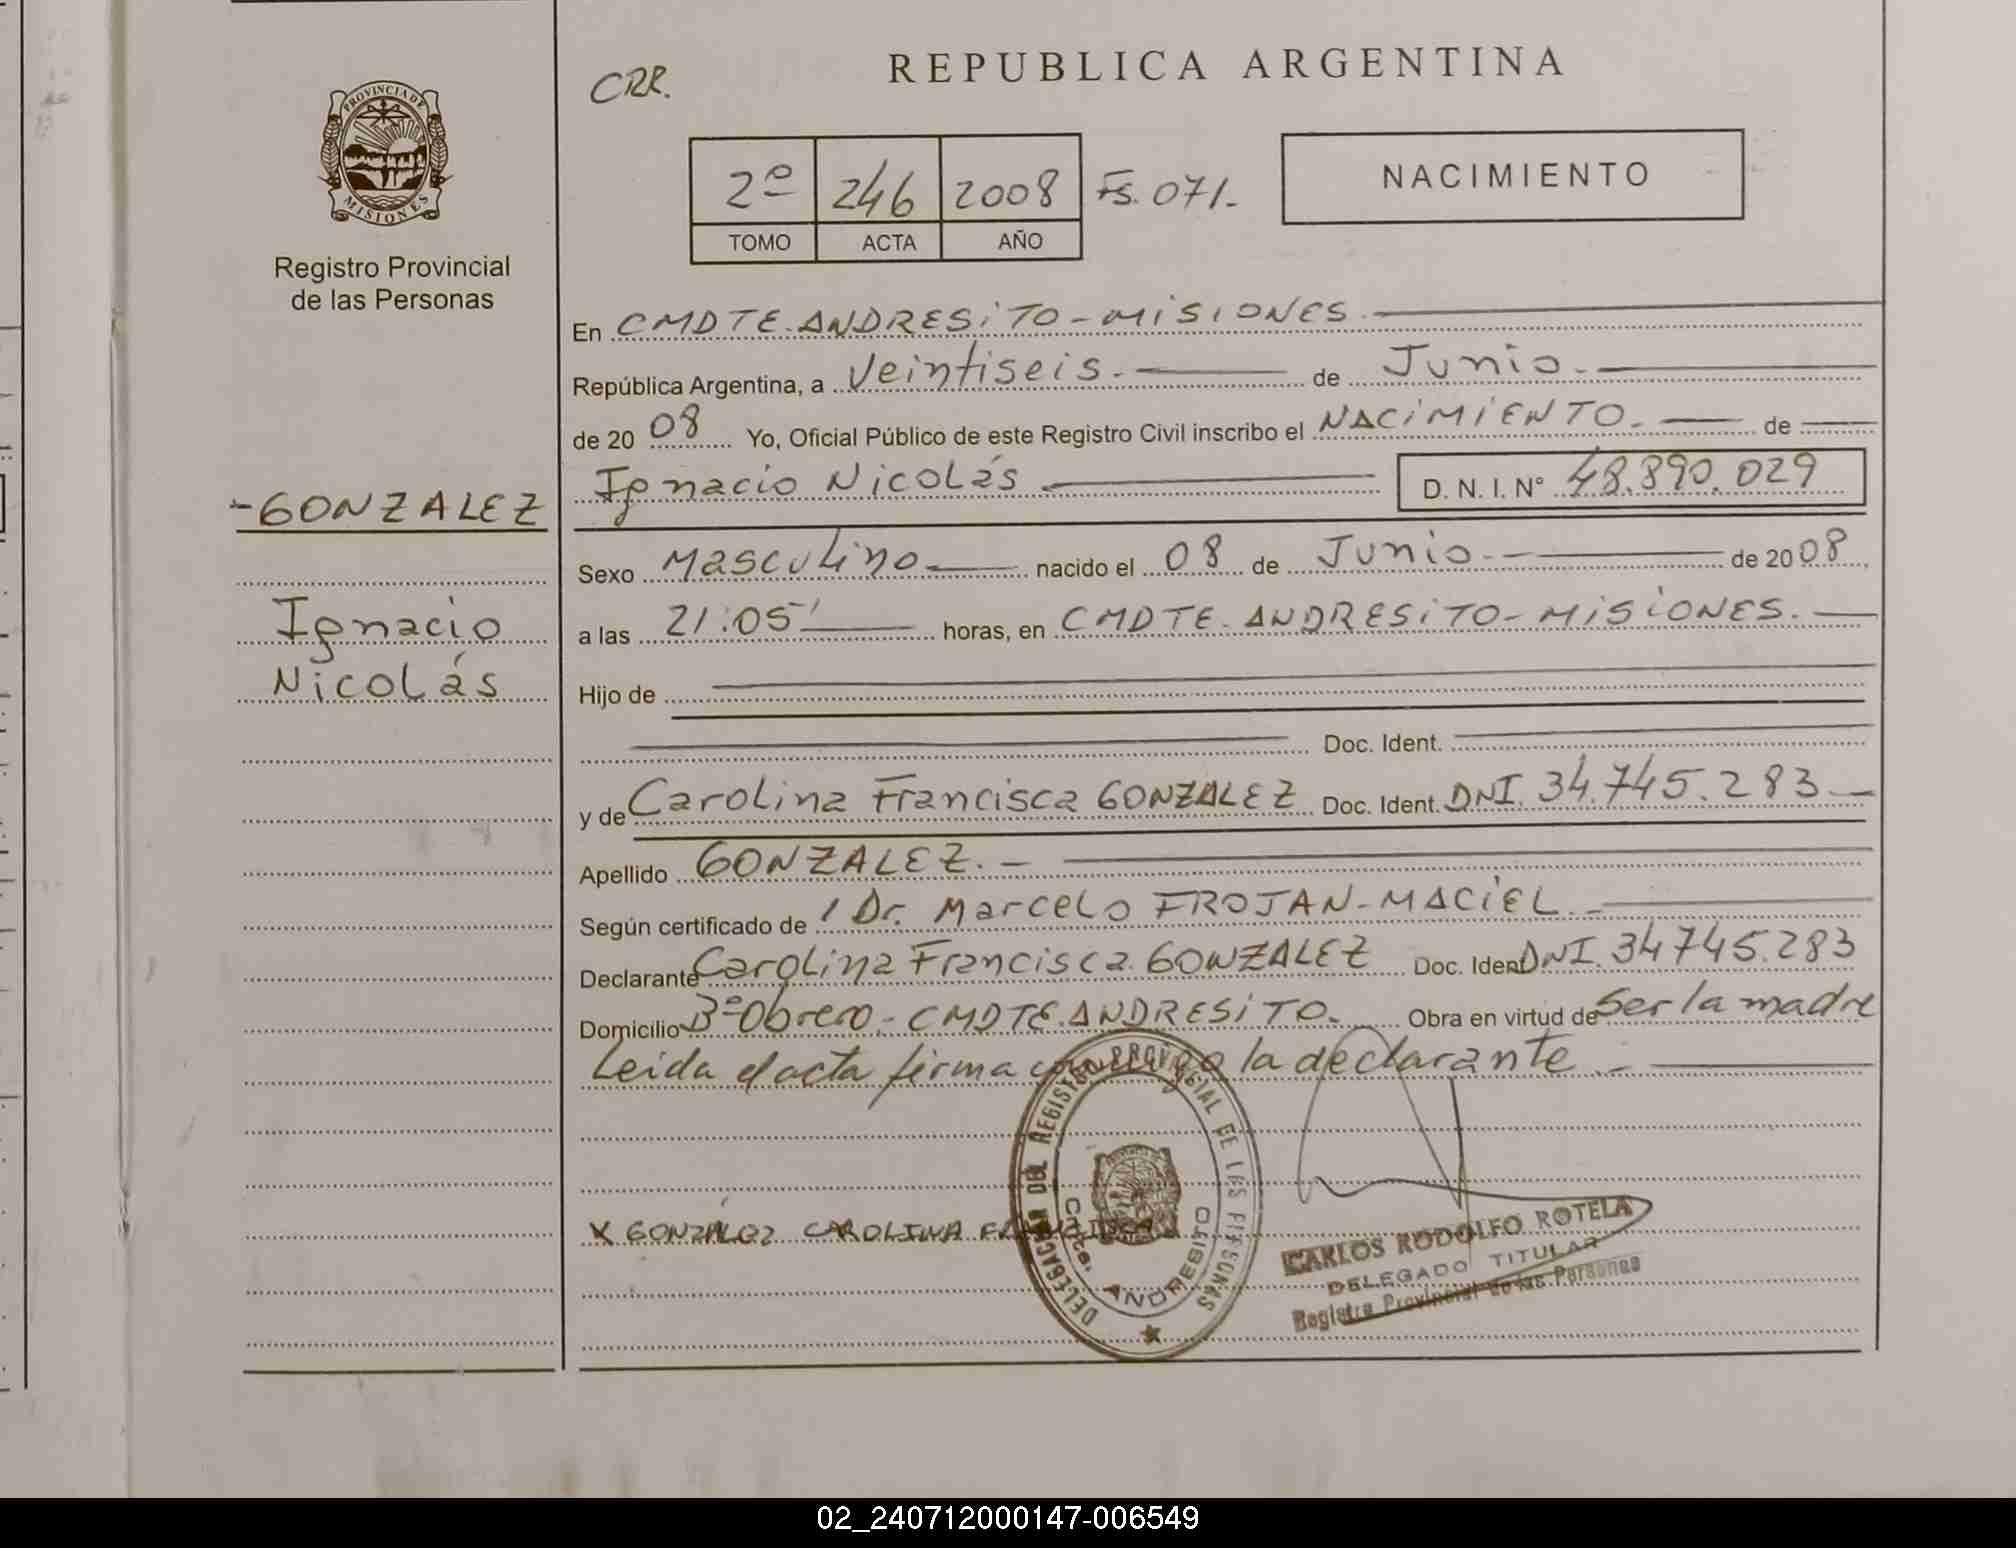 PROVINCIA DE
MISIONES
Registro Provincial
de las Personas
-GONZALEZ
Ignacio
Nicolás
CRR.
REPUBLICA ARGENTINA
2º 246 2008 Fs. 071.-
TOMO ACTA AÑO
NACIMIENTO
En CMDTE. ANDRESiTO-MiSIONES.
República Argentina, a Veintiseis. de Junio.
de 2008 Yo, Oficial Público de este Registro Civil inscribo el NACiMIENTO. de
Ignacio Nicolás D. N. I. N° 48.890.029
Sexo Masculino nacido el 08 de Junio de 2008
a las 21:05' horas, en CMDTE. ANDRESiTO-MiSiONES.
Hijo de
Doc. Ident.
y de Carolina Francisca GONZALEZ Doc. Ident. DNI. 34.745.283
Apellido GONZALEZ.
Según certificado de Dr. Marcelo FROJAN-MACiEL.
Declarante Carolina Francisca GONZALEZ Doc. Iden DNI. 34745.283
Domicilio Bº Obrero.- CMDTE.ANDRESiTO. Obra en virtud de Ser la madre
Leida el acta firma conmigo la declarante.-
X GONZALEZ CAROLINA FRANCISCA
DELEGACION DEL REGISTRO PROVINCIAL DE LAS PERSONAS
Cdte. ANDRESITO
CARLOS RODOLFO ROTELA
DELEGADO TITULAR
Registro Provincial de las Personas
02_240712000147-006549